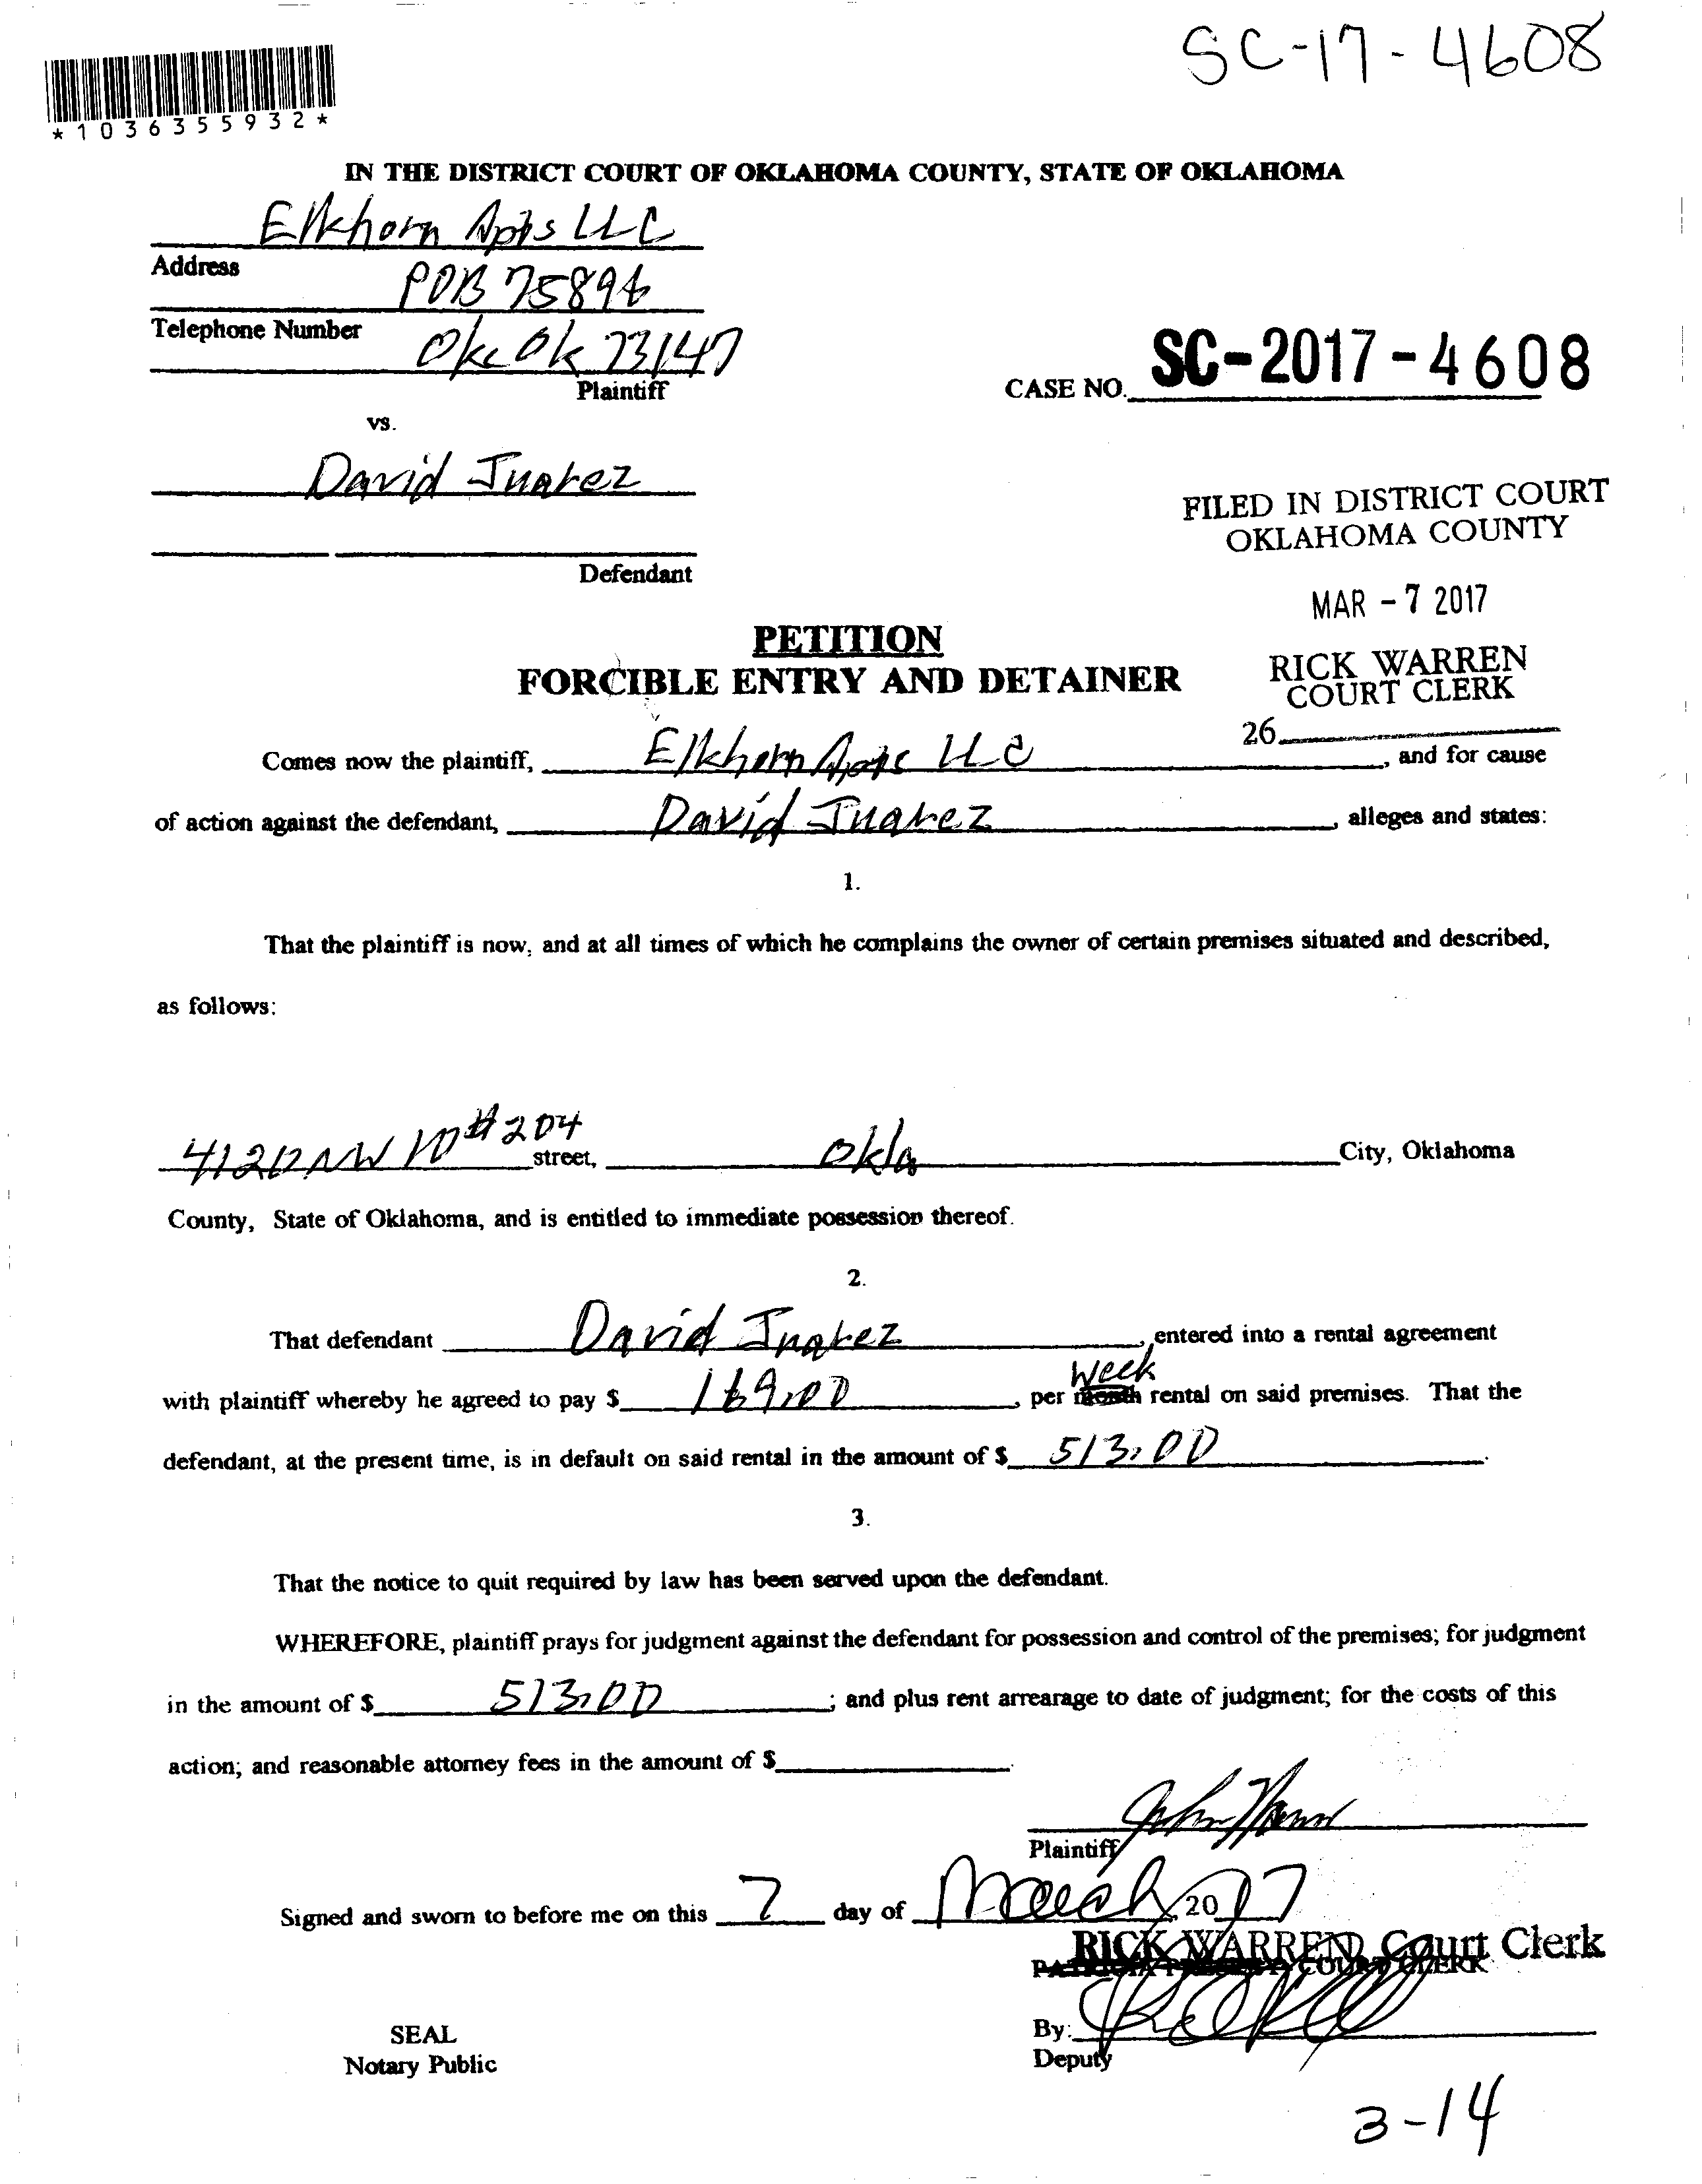 SC-17-4608
*1036355932*
IN THE DISTRICT COURT OF OKLAHOMA COUNTY, STATE OF OKLAHOMA
Elkhorn Apts LLC
Address
POB 75896
Telephone Number
Okc Ok 73147
Plaintiff
CASE NO. SC-2017-4608
vs.
David Juarez
Defendant
FILED IN DISTRICT COURT
OKLAHOMA COUNTY
MAR -7 2017
RICK WARREN
COURT CLERK
26
PETITION
FORCIBLE ENTRY AND DETAINER
Comes now the plaintiff, Elkhorn Apts LLC, and for cause
of action against the defendant, David Juarez, alleges and states:
1.
That the plaintiff is now, and at all times of which he complains the owner of certain premises situated and described,
as follows:
4120 NW 10 #204 street, Okla City, Oklahoma
County, State of Oklahoma, and is entitled to immediate possession thereof.
2.
That defendant David Juarez, entered into a rental agreement
Week
with plaintiff whereby he agreed to pay $ 169.00, per month rental on said premises. That the
defendant, at the present time, is in default on said rental in the amount of $ 513.00.
3.
That the notice to quit required by law has been served upon the defendant.
WHEREFORE, plaintiff prays for judgment against the defendant for possession and control of the premises; for judgment
in the amount of $ 513.00; and plus rent arrearage to date of judgment; for the costs of this
action; and reasonable attorney fees in the amount of $
Plaintiff
Signed and sworn to before me on this 7 day of March, 2017
RICK WARREN, Court Clerk
COURT CLERK
By:
Deputy
SEAL
Notary Public
3-14